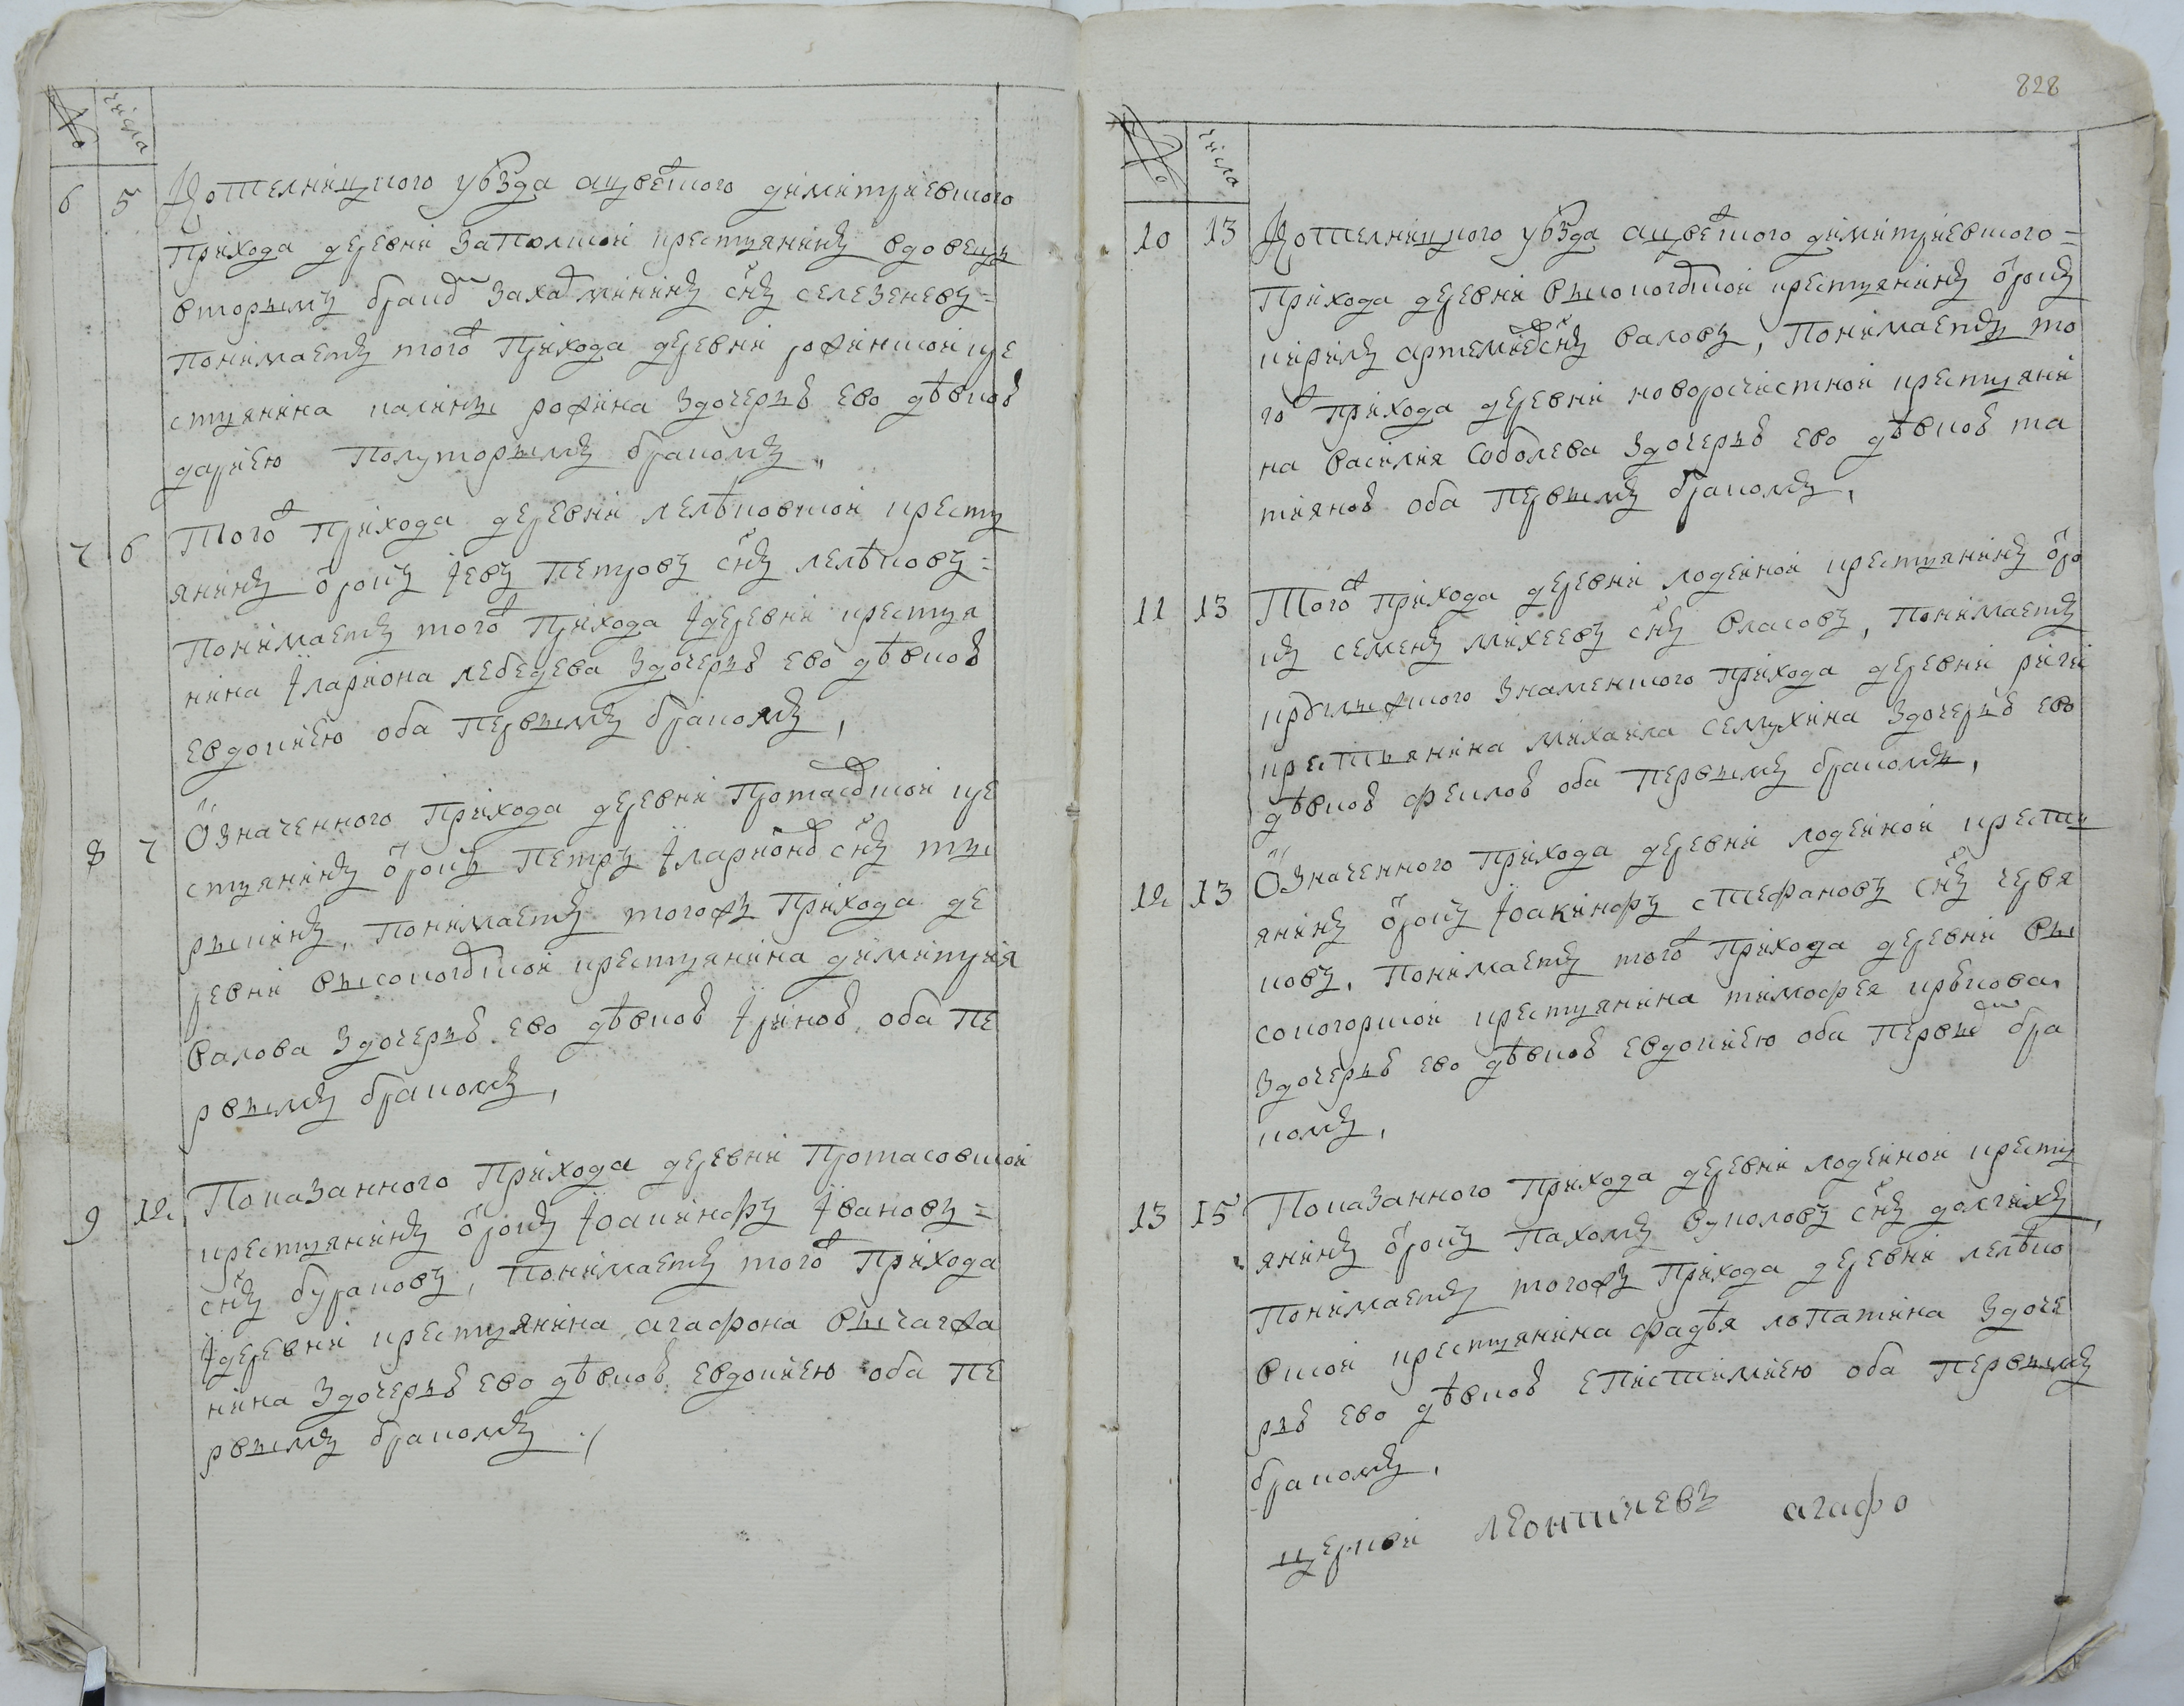 828
№ числа
6 5 Котелницкого уѣзда ацвежского димитриевского
прихода деревни Заполской крестьянинъ вдовецъ
вторымъ бракомъ Захаръ мининъ снъ селезеневъ =
понимаетъ того прихода деревни рофинской кре
стьянина калины рофина здочерью ево дѣвкою
дариею полуторымъ бракомъ,
7 6 Того прихода деревни лелѣковской кресть
янинъ отрокъ Iевъ петровъ снъ лелѣковъ =
понимаетъ того прихода Iдеревни крестья
нина Iлариона лебедева здочерью ево дѣвкою
евдокиею оба первымъ бракомъ,
8 7 Означенного прихода деревни протасовской кре
стьянинъ отрокъ петръ Iларионовъ снъ ты
рыкинъ, понимаетъ тогожъ прихода де
ревни высокогорской крестьянина димитрия
валова здочерью ево дѣвкою Iриною оба пе
рвымъ бракомъ,
9 12 Показанного прихода деревни протасовской
крестьянинъ отрокъ Iоакинфъ Iвановъ =
снъ бураковъ, понимаетъ того прихода
Iдеревни крестьянина агафона вычагжа
нина здочерью ево дѣвкою евдокиею оба пе
рвымъ бракомъ,
№ числа
10 13 Котелницкого уѣзда ацвежского димитриевского =
прихода деревни высокогорской крестьянинъ отрокъ
кирилъ артемиевъ снъ валовъ, понимаетъ то
го прихода деревни новоросчистной крестьяни
на василия соболева здочерью ево дѣвкою та
тияною оба первымъ бракомъ,
11 13 Того прихода деревни лодейной крестьянинъ отро
къ семенъ михеевъ снъ власовъ, понимаетъ
крысьинского знаменского прихода деревни ричи
крестьянина михаила семухина здочерью ево
дѣвкою феклою оба первымъ бракомъ,
12 13 Означенного прихода деревни лодейной кресть
янинъ отрокъ Iоакинфъ стефановъ снъ червя
ковъ, понимаетъ того прихода деревни вы
сокогорской крестьянина тимофея крѣкова
здочерью ево дѣвкою евдокиею оба первымъ бра
комъ,
13 15 Показанного прихода деревни лодейной кресть
янинъ отрокъ пахомъ вуколовъ снъ долгихъ,
понимаетъ тогожъ прихода деревни лелѣко
вской крестьянина фадѣя лопатина здоче
рью ево дѣвкою епистимиею оба первымъ
бракомъ,
церкви леонтиевъ агафо